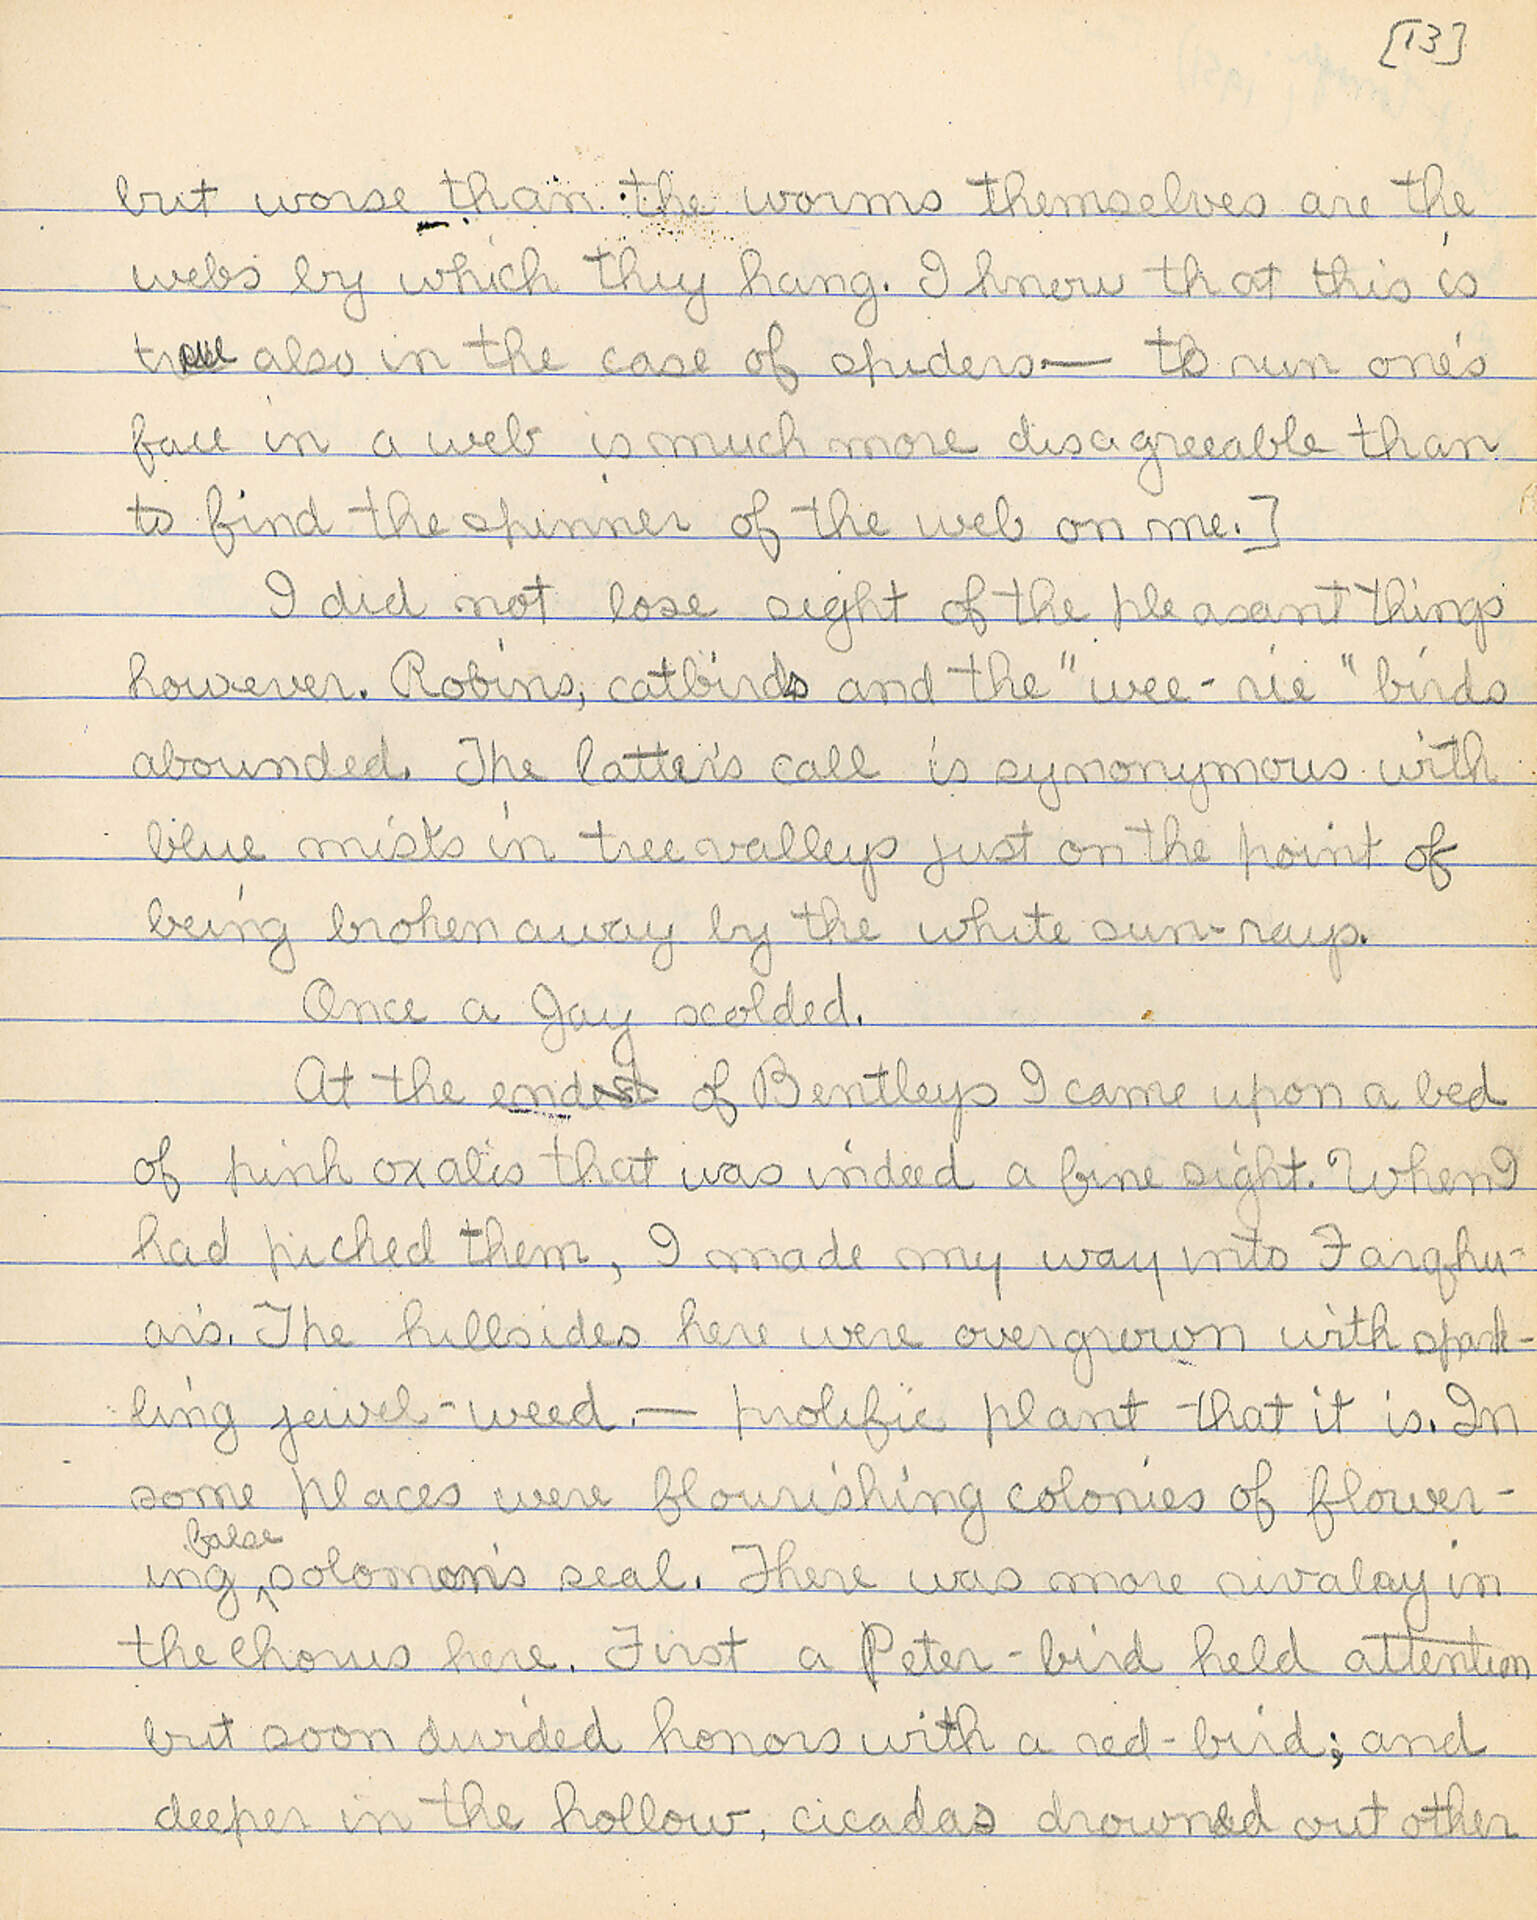 [13]
but worse than the worms themselves are the
webs by which they hang. I know that this is
true also in the case of spiders — to run one's
face in a web is much more disagreeable than
to find the spinner of the web on me.]
I did not lose sight of the pleasant things
however. Robins, catbirds and the "wee-rie" birds
abounded. The latter's call is synonymous with
blue mists in tree valleys just on the point of
being broken away by the white sun-rays.
Once a Jay scolded.
At the end of Bentleys I came upon a bed
of pink oxalis that was indeed a fine sight. When I
had picked them, I made my way into Farqhu-
ar's. The hillsides here were overgrown with spark-
ling jewel-weed. — prolific plant that it is. In
some places were flourishing colonies of flower-
ing false solomon's seal. There was more rivalry in
the chorus here. First a Peter-bird held attention
but soon divided honors with a red-bird; and
deeper in the hollow, cicadas drowned out other